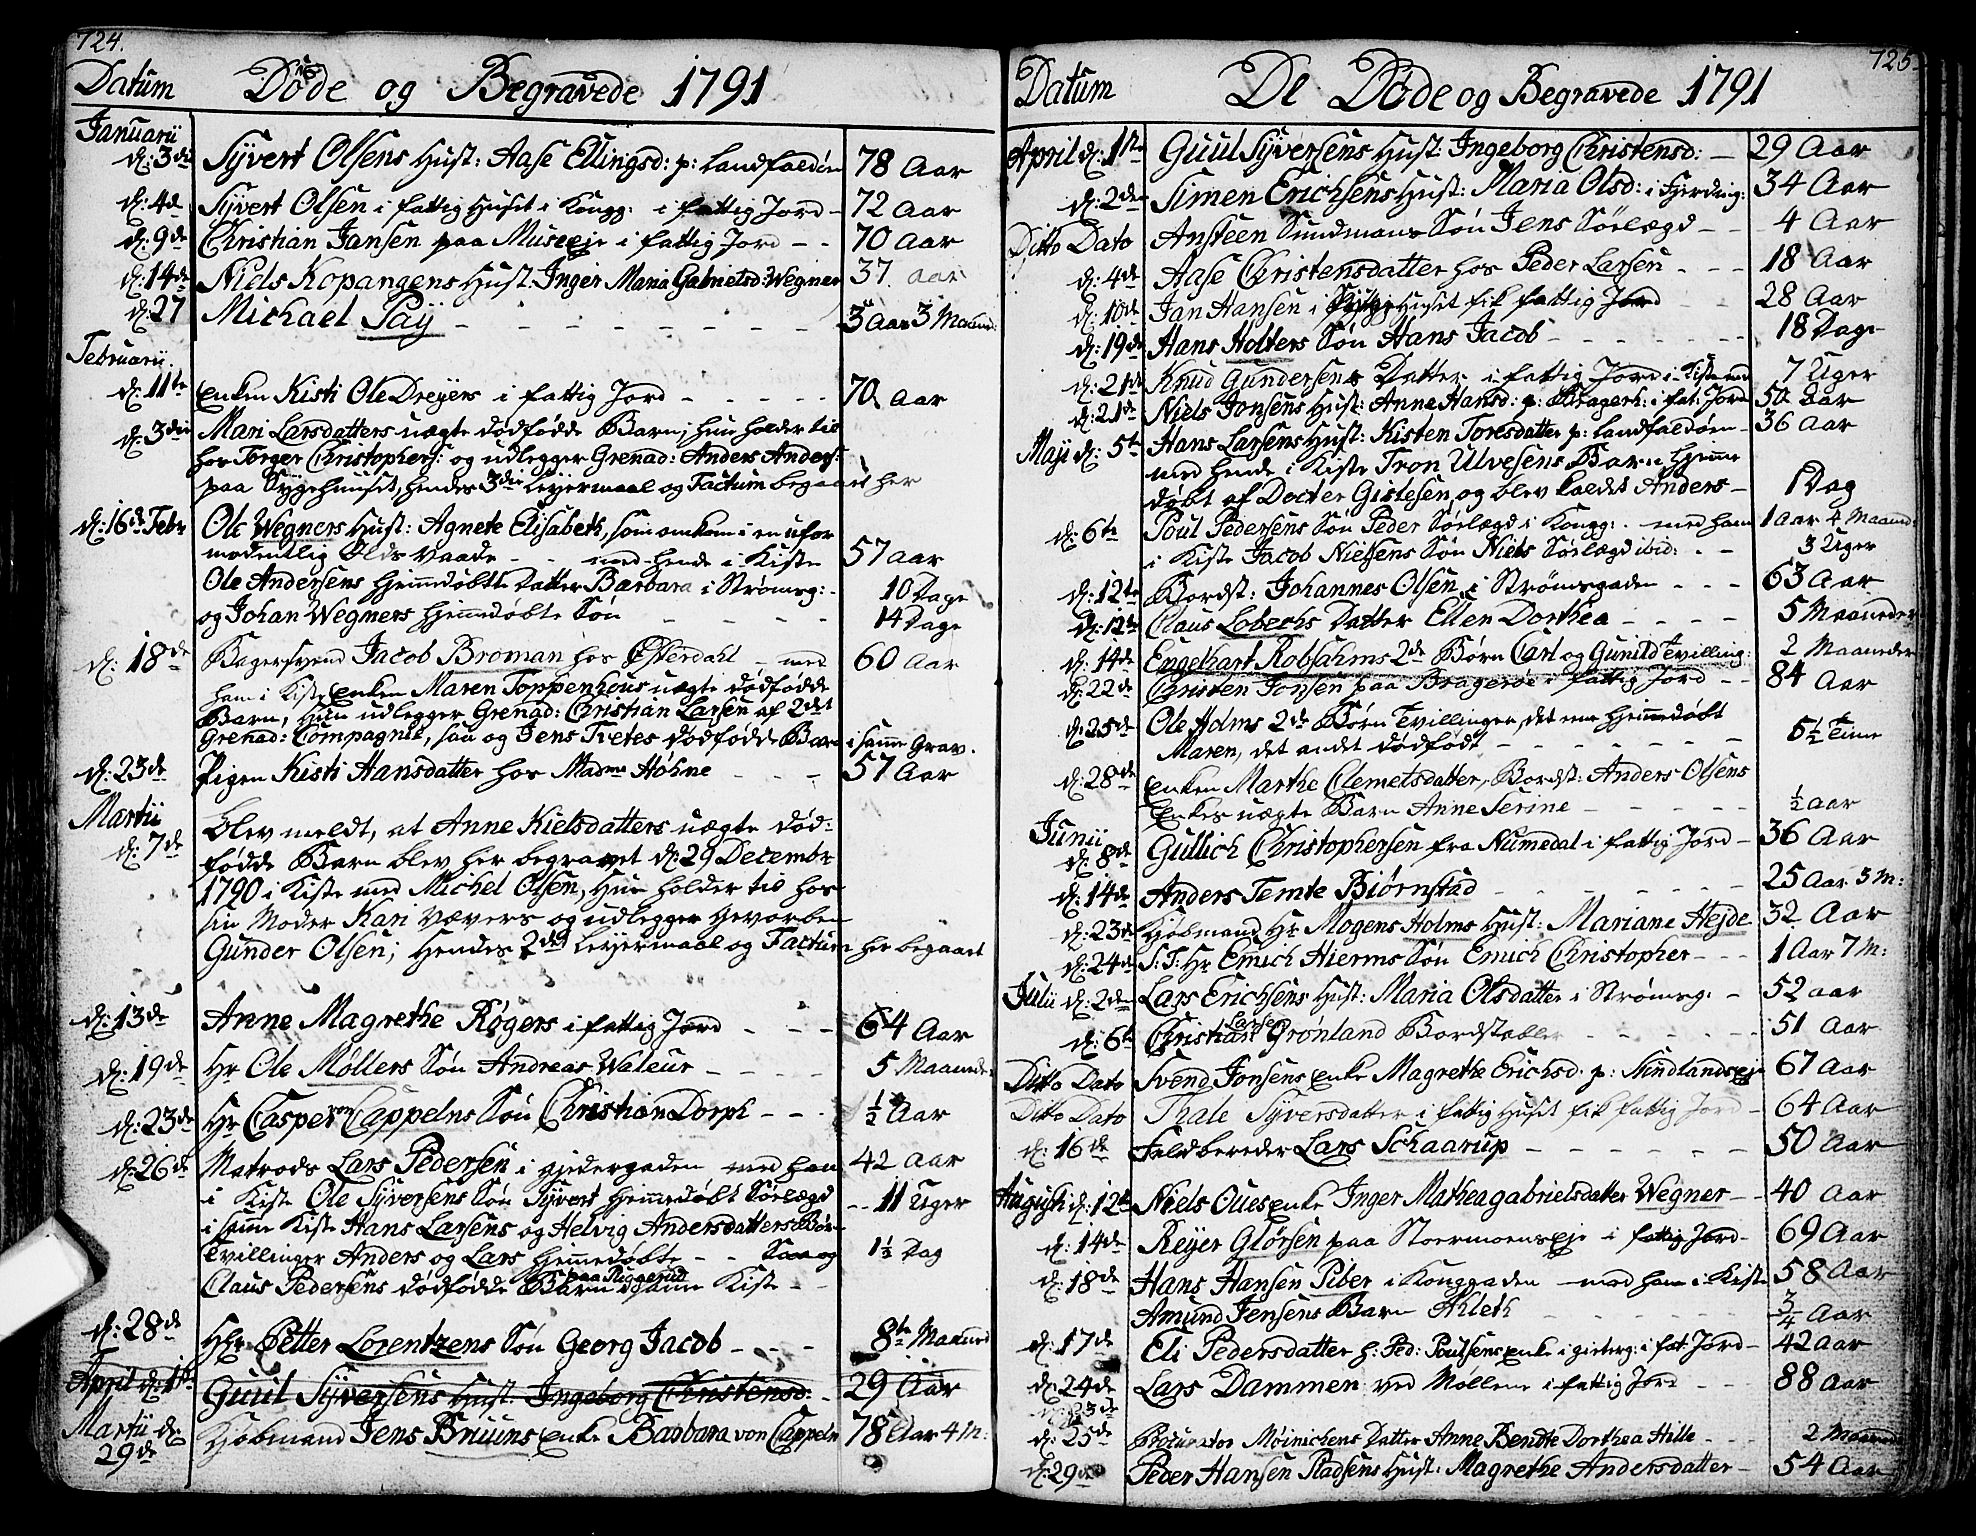 724.
Datum Døde og Begravede 1791
Januarii
d: 3die Syvert Olsens Hust: Aase Ellingsd: p: Landfaldøen 78 Aar
d: 4de Syvert Olsen i fattig Huset i Kongg: i fattig Jord - 72 Aar
d: 9de Christian Jansen paa Museeje i fattig Jord - - 70 Aar
d: 14de Niels Kopangens Hust: Inger Maria Gabrielsd: Wegner 37. aar
d: 27 Michael Paij - - - - - - - 3 Aar 3 Maaned:
Februarii
d: 11te Enken Kisti Ole Dreyers i fattig Jord - - - - 70 Aar
d: 3die Mari Larsdatters uægte dødfødde Barn, hun holder til
hos Torger Christophers: og udlegger Grenad: Anders Anders:
paa Sygehuuset, hendes 3die Leyermaal og Factum begaaet her
d: 16de Febr Ole Wegners Hust: Agnete Elisabeth, som omkom i en ufor
modentlig Ilds Vaade - - med hende i Kiste 57 Aar
Ole Andersens Hjemmdøbte Datter Barbara i Strømsg: - 10 Dage
og Johan Wegners Hjemmdøbte Søn - - - 14 Dage
d: 18de Bagersvend Jacob Broman hos Østerdahl - med 60 Aar
ham i Kiste Enken Maren Toppenhous uægte dødfødde
Barn, hun udlegger Grenad: Christian Larsen af 2det
Grenad: Compagnie, saa og Jens Tvetes dødfødde Barn i samme Grav.
d: 23de Pigen Kisti Hansdatter hos Madme Høhne - - - 57 Aar
Martii
d: 7de Blev meldt, at Anne Kielsdatters uægte død-
fødde Barn blev her begravet d: 29 Decembr
1790 i Kiste med Michel Olsen, hun holder til hos
sin Moder Kari Vævers og udlegger Hevorben
Gunder Olsen; Hendes 2det Leyermaal og Factum her begaaet
d: 13de Anne Magrethe Røgers i fattig Jord - - - 64 Aar
d: 19de Hr Ole Møllers Søn Andreas Waleur - - - - 5 Maaneder
d: 23de Hr Casper von Cappelns Søn Christian Dorph - - - ½ Aar
d: 26de Matros Lars Pedersen i gjedergaden med ham 42 Aar
i Kiste Ole Syversens Søn Syvert Hjemmedøbt Sørlægd - - 11 Uger
i samme Kiste Hans Larsens og Helvig Andersdatters Børn
Tvillinger Anders og Lars Hjemmedøbte - - Saa og 1½ Dag
paa Riggerud
Claus Pedersens dødfødde Barn i samme Kiste - -
d: 28de Hr Petter Lorentzens Søn Georg Jacob - - - - 8te Maaned
April d: 1ste Guul Syversens Hust: Ingeborg Christensd: - 29 Aar
Martii d: Kjøbmand Jens Bruuns Enke Barbara von Cappeln 78 Aar 4 M:
29de
725.
Datum De Døde og Begravede 1791
April d: 1ste Guul Syversens Hust: Ingeborg Christensd: - 29 Aar
d: 2den Simen Erichsens Hust: Maria Olsd: i Fjerding: 34 Aar
Ditto Dato Ansteen Sundmans Søn Jens Sørlægd - - 4 Aar
d: 4de Aase Christensdatter hos Peder Larsen - - - 18 Aar
d: 10de Jan Hansen i Huset fik fattig Jord - - 28 Aar
d: 19de Hans Holters Søn Hans Jacob - - - - - - - 18 Dage
d: 21de Knud Gundersens Datter i fattig Jord i Kiste med 7 Uger
d: 21de Niels Jonsens Hust: Anne Hansd: p: Bragerh: i fat: Jord 50 Aar
Maji d: 5te Hans Larsens Hust: Kisten Toresdatter p: Landfaldøen - 36 Aar
med hende i Kiste Tron Ulvesens Barn hjemme
døbt af Docter Gislesen, og blev kaldet Anders - 1 Dag
d: 6te Poul Pedersens Søn Peder Sørlægd i Kongg: med ham 1 Aar 4 Maand:
i Kiste Jacob Nielsens Søn Niels Sørlægd ibid: - - 3 Uger
d: 12te Bordst: Johannes Olsen i Strømsgaden - - - 63 Aar
d: 12te Claus Lobechs Datter Ellen Dorthea - - - - 5 Maaneder
d: 14de Engelhart Robsahms 2de Børn Carl og Gunild Tvilling: 2 Maaneder
d: 22de Christen Jonsen paa Bragerøe i fattig Jord - - 84 Aar
d: 25de Ole Holms 2de Børn Tvillinger, det ene Hjemmedøbt
Maren, det andet dødfødt - - - - - - - 5½ Time
d: 28de Enken Marthe Clemetsdatter, Bordst: Anders Olsens
Enkes uægte Barn Anne Serine - - - - - ½ Aar
Junii
d: 8de Gullich Christophersen fra Numedal i fattig Jord - 36 Aar
d: 14de Anders Temte Biørnstad - - - - - - - 25 Aar 3 M:
d: 23de Kjøbmand Hr Mogens Holms Hust: Mariane Hejde 32 Aar
d: 24de S: T: Hr Emich Hierms Søn Emich Christopher - - - 1 Aar 7 M:
Julii d: 2den Lars Erichsens Hust: Maria Olsdatter i Strømsg: - 52 aar
d: 6te Christian Larsen Grønland Bordstabler - - - - 51 Aar
Ditto Dato Svend Jonsens Enke Magrethe Erichsd: p: Sundlandseje 67 Aar
Ditto Dato Thale Syversdatter i fattig Huset fik fattig Jord - 64 Aar
d: 16de Feldbereder Lars Schaarup - - - - - 50 Aar
Augusti d: 12te Niels Oues Enke Inger Mathea gabrielsdatter Wegner - - 40 Aar
d: 14de Reyer Glørsen paa Stoermoenseje i fattig Jord - 69 Aar
d: 18de Hans Hansen Piber i Konggaden - med ham i Kiste 58 Aar
Amund Jensens Barn Athleth - - - - ¾ Aar
d: 17de Eli Pedersdatter h: Ped: Poulsens Enke i gieterg: i fat: Jord - 42 Aar
d: 24de Lars Dammen ved Møllene i fattig Jord - - 88 Aar
d: 25de
d: 25de Procurator Møinichens Datter Anne Bendte Dorthea Hille - 2 Maaneder
d: 29de Peder Hansen Stadsens Hust: Magrethe Andersdatter - 54 Aar